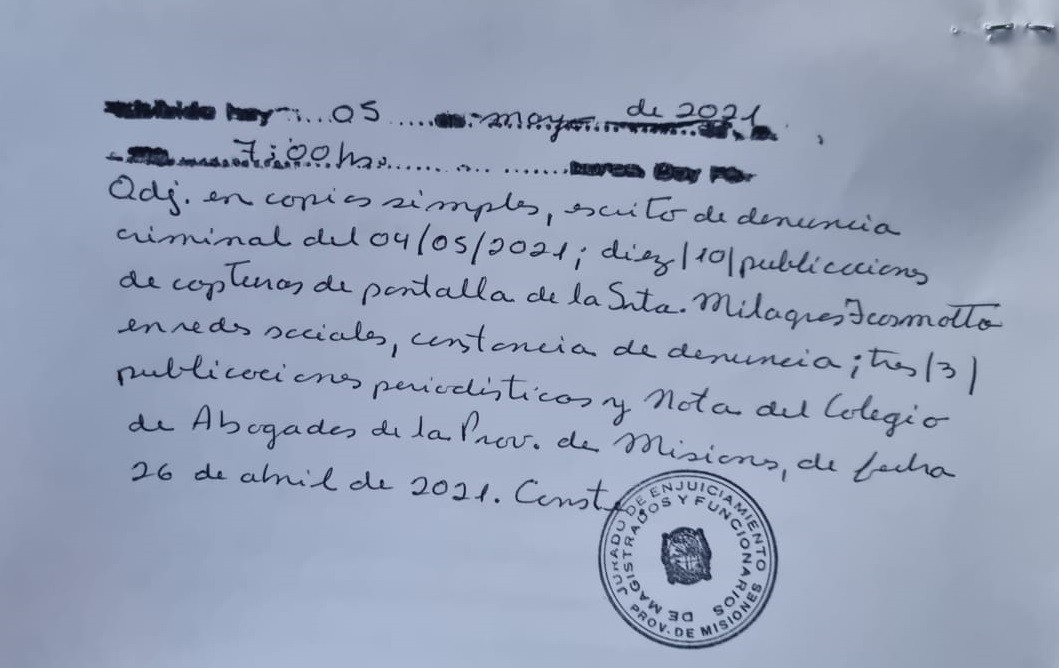 05 de mayo de 2021,
7:00 hs.
Adj. en copias simples, escrito de denuncia
criminal del 04/05/2021; diez/10/publicaciones
de capturas de pantalla de la Srta. Milagres
en redes sociales, constancia de denuncia; tres/3/
publicaciones periodísticas y Nota del Colegio
de Abogados de la Prov. de Misiones, de fecha
26 de abril de 2021. Conste.
JURADO DE ENJUICIAMIENTO
DE MAGISTRADOS Y FUNCIONARIOS
PROV. DE MISIONES